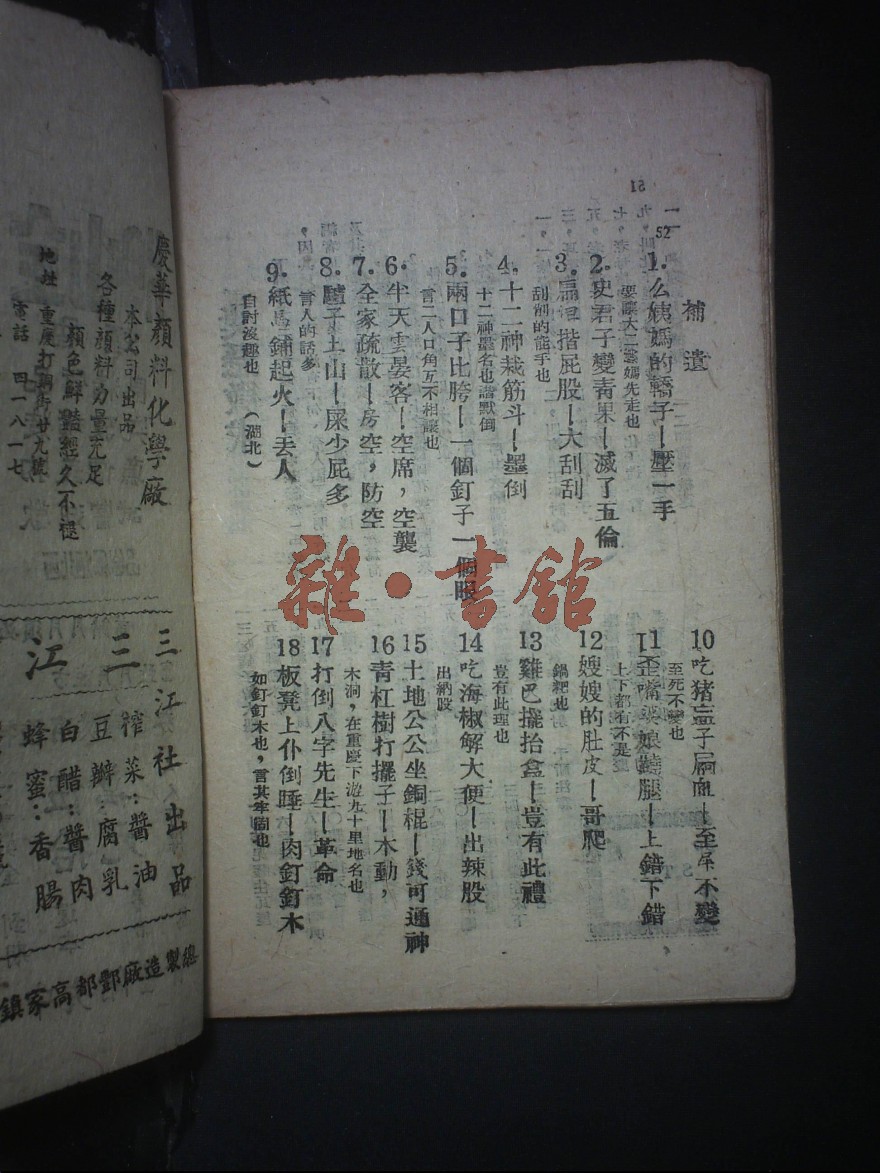 52
補遺
1. 么姨媽的轎子—壓一手
要讓大二姨媽先走也
2. 史君子變青果—滅了五倫
3. 扁担揩屁股—大刮刮
刮削的能手也
4. 十二神栽筋斗—墨倒
十二神墨名也諧默倒
5. 兩口子比胯—一個釘子一個眼
言二人口角互不相讓也
6. 半天雲宴客—空席，空襲
7. 全家疏散—房空，防空
8. 驢子上山—屎少屁多
言人的話多
9. 紙馬鋪起火—丟人
自討沒趣也 （湖北）
10 吃猪血子屙血—至屎不變
至死不變也
11 歪嘴婆娘蹺腿—上錯下錯
上下都有不是
12 嫂嫂的肚皮—哥爬
鍋粑也
13 雞巴擺抬盒—豈有此禮
豈有此理也
14 吃海椒解大便—出辣股
出納股
15 土地公公坐銅棍—錢可通神
16 青杠樹打擺子—木動，
木洞，在重慶下游九十里地名也
17 打倒八字先生—革命
18 板凳上仆倒睡—肉釘釘木
如釘釘木也，言其牢固也
慶華顏料化學廠
本公司出品
各種顏料力量充足
顏色鮮豔經久不褪
地址 重慶打銅街廿九號
電話 四一八一七
三江社出品
三江
榨菜：醬油
豆瓣：腐乳
白醋：醬肉
蜂蜜：香腸
總製造廠酆都高家鎮
雜·書館